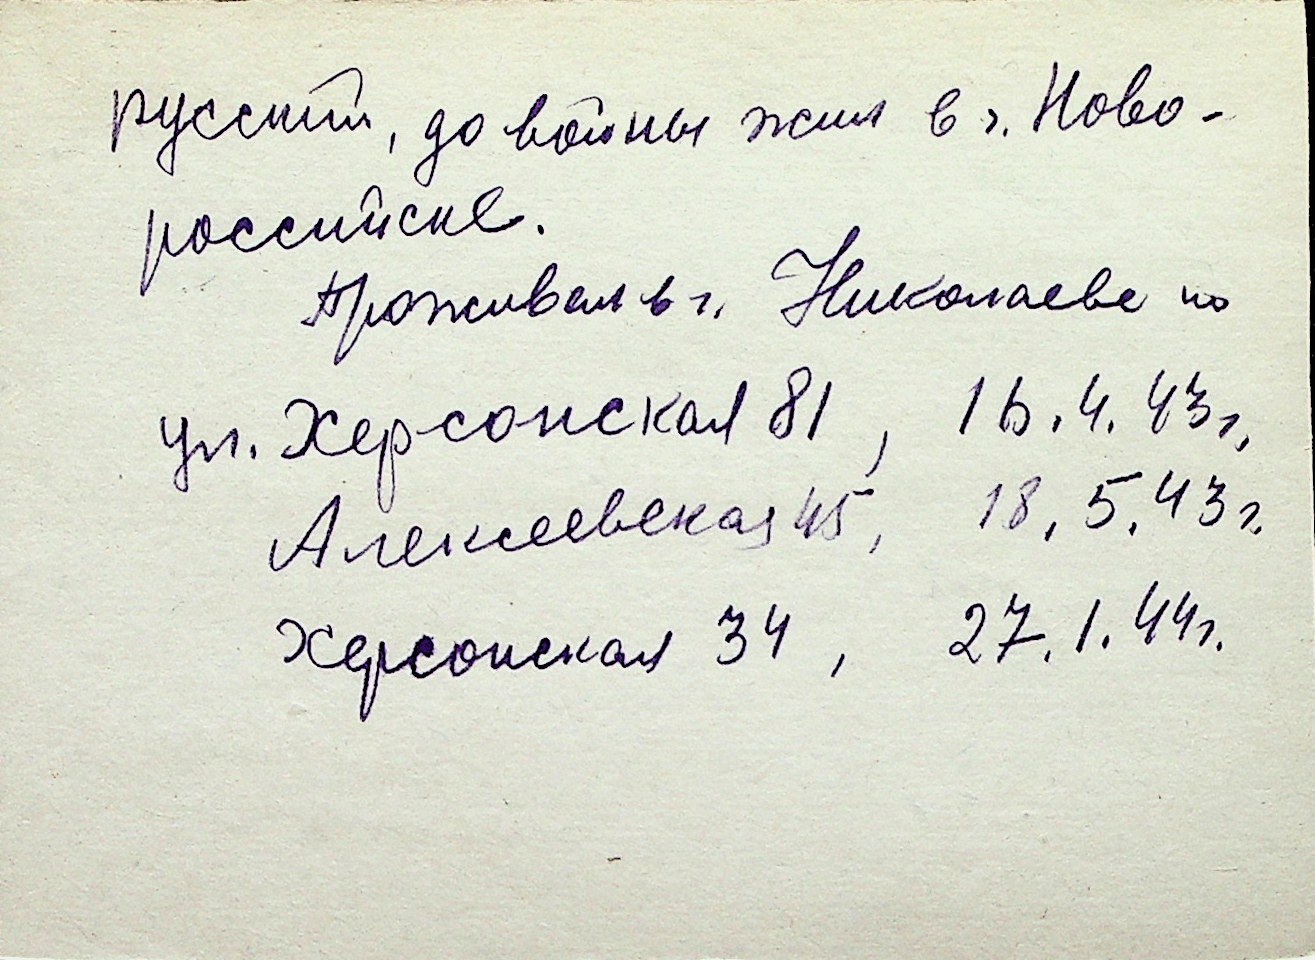 русский, до войны жил в г. Ново-
российске.
Проживал в г. Николаеве по
ул. Херсонская 81, 16.4.43г,
Алексеевская 45, 18.5.43г.
Херсонская 34, 27.1.44г.